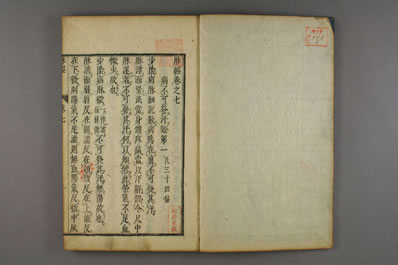 脉經卷之七
病不可發汗證第一 凡三十四證
少陰病脉細沉數病爲在裏不可發其汗
脉浮而緊法當身體疼痛當以汗解假令尺中
脉遲者不可發其汗何以知然此榮氣不足血
微少故也
少陰病脉微不可發其汗無陽故也
脉濡而弱弱反在關濡反在巔上微反
在下微則陽氣不足澀則無血陽氣反微中風